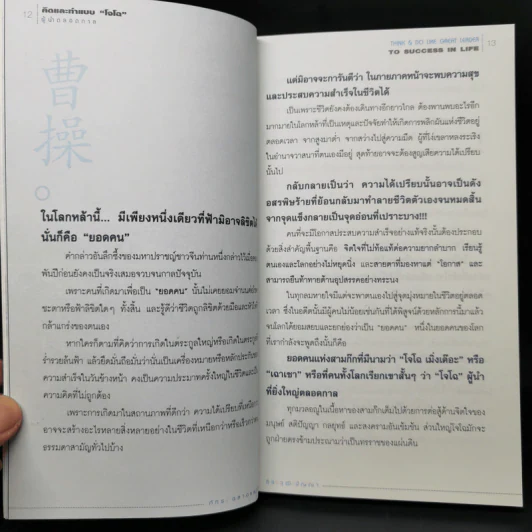 12
คิดและทำแบบ "โจโฉ"
ผู้นำยอดกาล
曹操
ในโลกหล้านี้... มีเพียงหนึ่งเดียวที่ฟ้ามิอาจลิขิตได้
นั่นก็คือ "ยอดคน"
คำกล่าวอันลึกซึ้งของมหาปราชญ์ชาวจีนท่านหนึ่งกล่าวไว้เมื่อ
พันปีก่อนยังคงเป็นจริงเสมอจวบจนกาลปัจจุบัน
เพราะคนที่เกิดมาเพื่อเป็น "ยอดคน" นั้นไม่เคยยอมจำนนต่อ
ชะตาหรือฟ้าลิขิตใดๆ ทั้งสิ้น และรู้ดีว่าชีวิตถูกลิขิตด้วยมือและหัวใจ
กล้าแกร่งของตนเอง
หากใครก็ตามที่คิดว่าการเกิดในตระกูลใหญ่หรือเกิดในตระกูล
ร่ำรวยล้นฟ้า แล้วยึดมั่นถือมั่นว่านั่นเป็นเครื่องหมายหรือหลักประกัน
ความสำเร็จในวันข้างหน้า คงเป็นความประมาทครั้งใหญ่ในชีวิตและเป็น
ความคิดที่ไม่ถูกต้อง
เพราะการเกิดมาในสถานภาพที่ดีกว่า ความได้เปรียบที่เหนือกว่า
อาจจะสร้างอะไรหลายสิ่งหลายอย่างในชีวิตที่เหนือกว่าหรือเร็วกว่า
ธรรมดาสามัญทั่วไปบ้าง
THINK & DO LIKE GREAT LEADER
TO SUCCESS IN LIFE
13
แต่มิอาจจะการันตีว่า ในภายภาคหน้าจะพบความสุข
และประสบความสำเร็จในชีวิตได้
เป็นเพราะชีวิตยังคงต้องเดินทางอีกยาวไกล ต้องพานพบอะไรอีก
มากมายในโลกหล้าที่เป็นเหตุและปัจจัยทำให้เกิดการพลิกผันแห่งชีวิตอยู่
ตลอดเวลา จากสูงมาต่ำ จากสว่างไปสู่ความมืด ผู้ที่โง่เขลาหลงระเริง
ในอำนาจวาสนาที่ตนเองมีอยู่ สุดท้ายอาจจะต้องสูญเสียความได้เปรียบ
นั้นไป
กลับกลายเป็นว่า ความได้เปรียบนั้นอาจเป็นดั่ง
อสรพิษร้ายที่ย้อนกลับมาทำลายชีวิตตัวเองจนหมดสิ้น
จากจุดแข็งกลายเป็นจุดอ่อนที่เปราะบาง!!!
คนที่จะมีโอกาสประสบความสำเร็จอย่างแท้จริงนั้นต้องประกอบ
ด้วยสิ่งสำคัญพื้นฐานคือ จิตใจที่ไม่ท้อแท้ต่อความยากลำบาก เรียนรู้
ตนเองและโลกอย่างไม่หยุดนิ่ง และสายตาที่มองหาแต่ "โอกาส" และ
สามารถยืนท้าทายต้านอุปสรรคอย่างทระนง
ในทุกลมหายใจมีแต่จะพาตนเองไปสู่จุดมุ่งหมายในชีวิตอยู่ตลอด
เวลา ซึ่งในอดีตนั้นมีผู้คนไม่น้อยเช่นกันที่ได้พิสูจน์ด้วยหลักการนี้มาแล้ว
จนโลกได้ยอมสยบและยกย่องว่าเป็น "ยอดคน" หนึ่งในยอดคนของโลก
ที่เรากำลังจะพูดถึงนั้นก็คือ
ยอดคนแห่งสามก๊กที่มีนามว่า "โจโฉ เม่งเต๊อะ" หรือ
"เฉาเชา" หรือที่คนทั้งโลกเรียกเขาสั้นๆ ว่า "โจโฉ" ผู้นำ
ที่ยิ่งใหญ่ตลอดกาล
ทุกมวลอณูในเนื้อหาของสามก๊กเต็มไปด้วยการต่อสู้ด้านจิตใจของ
มนุษย์ สติปัญญา กลยุทธ์ และสงครามอันเข้มข้น ส่วนใหญ่โจโฉมักจะ
ถูกฝ่ายตรงข้ามประณามว่าเป็นทรราชของแผ่นดิน